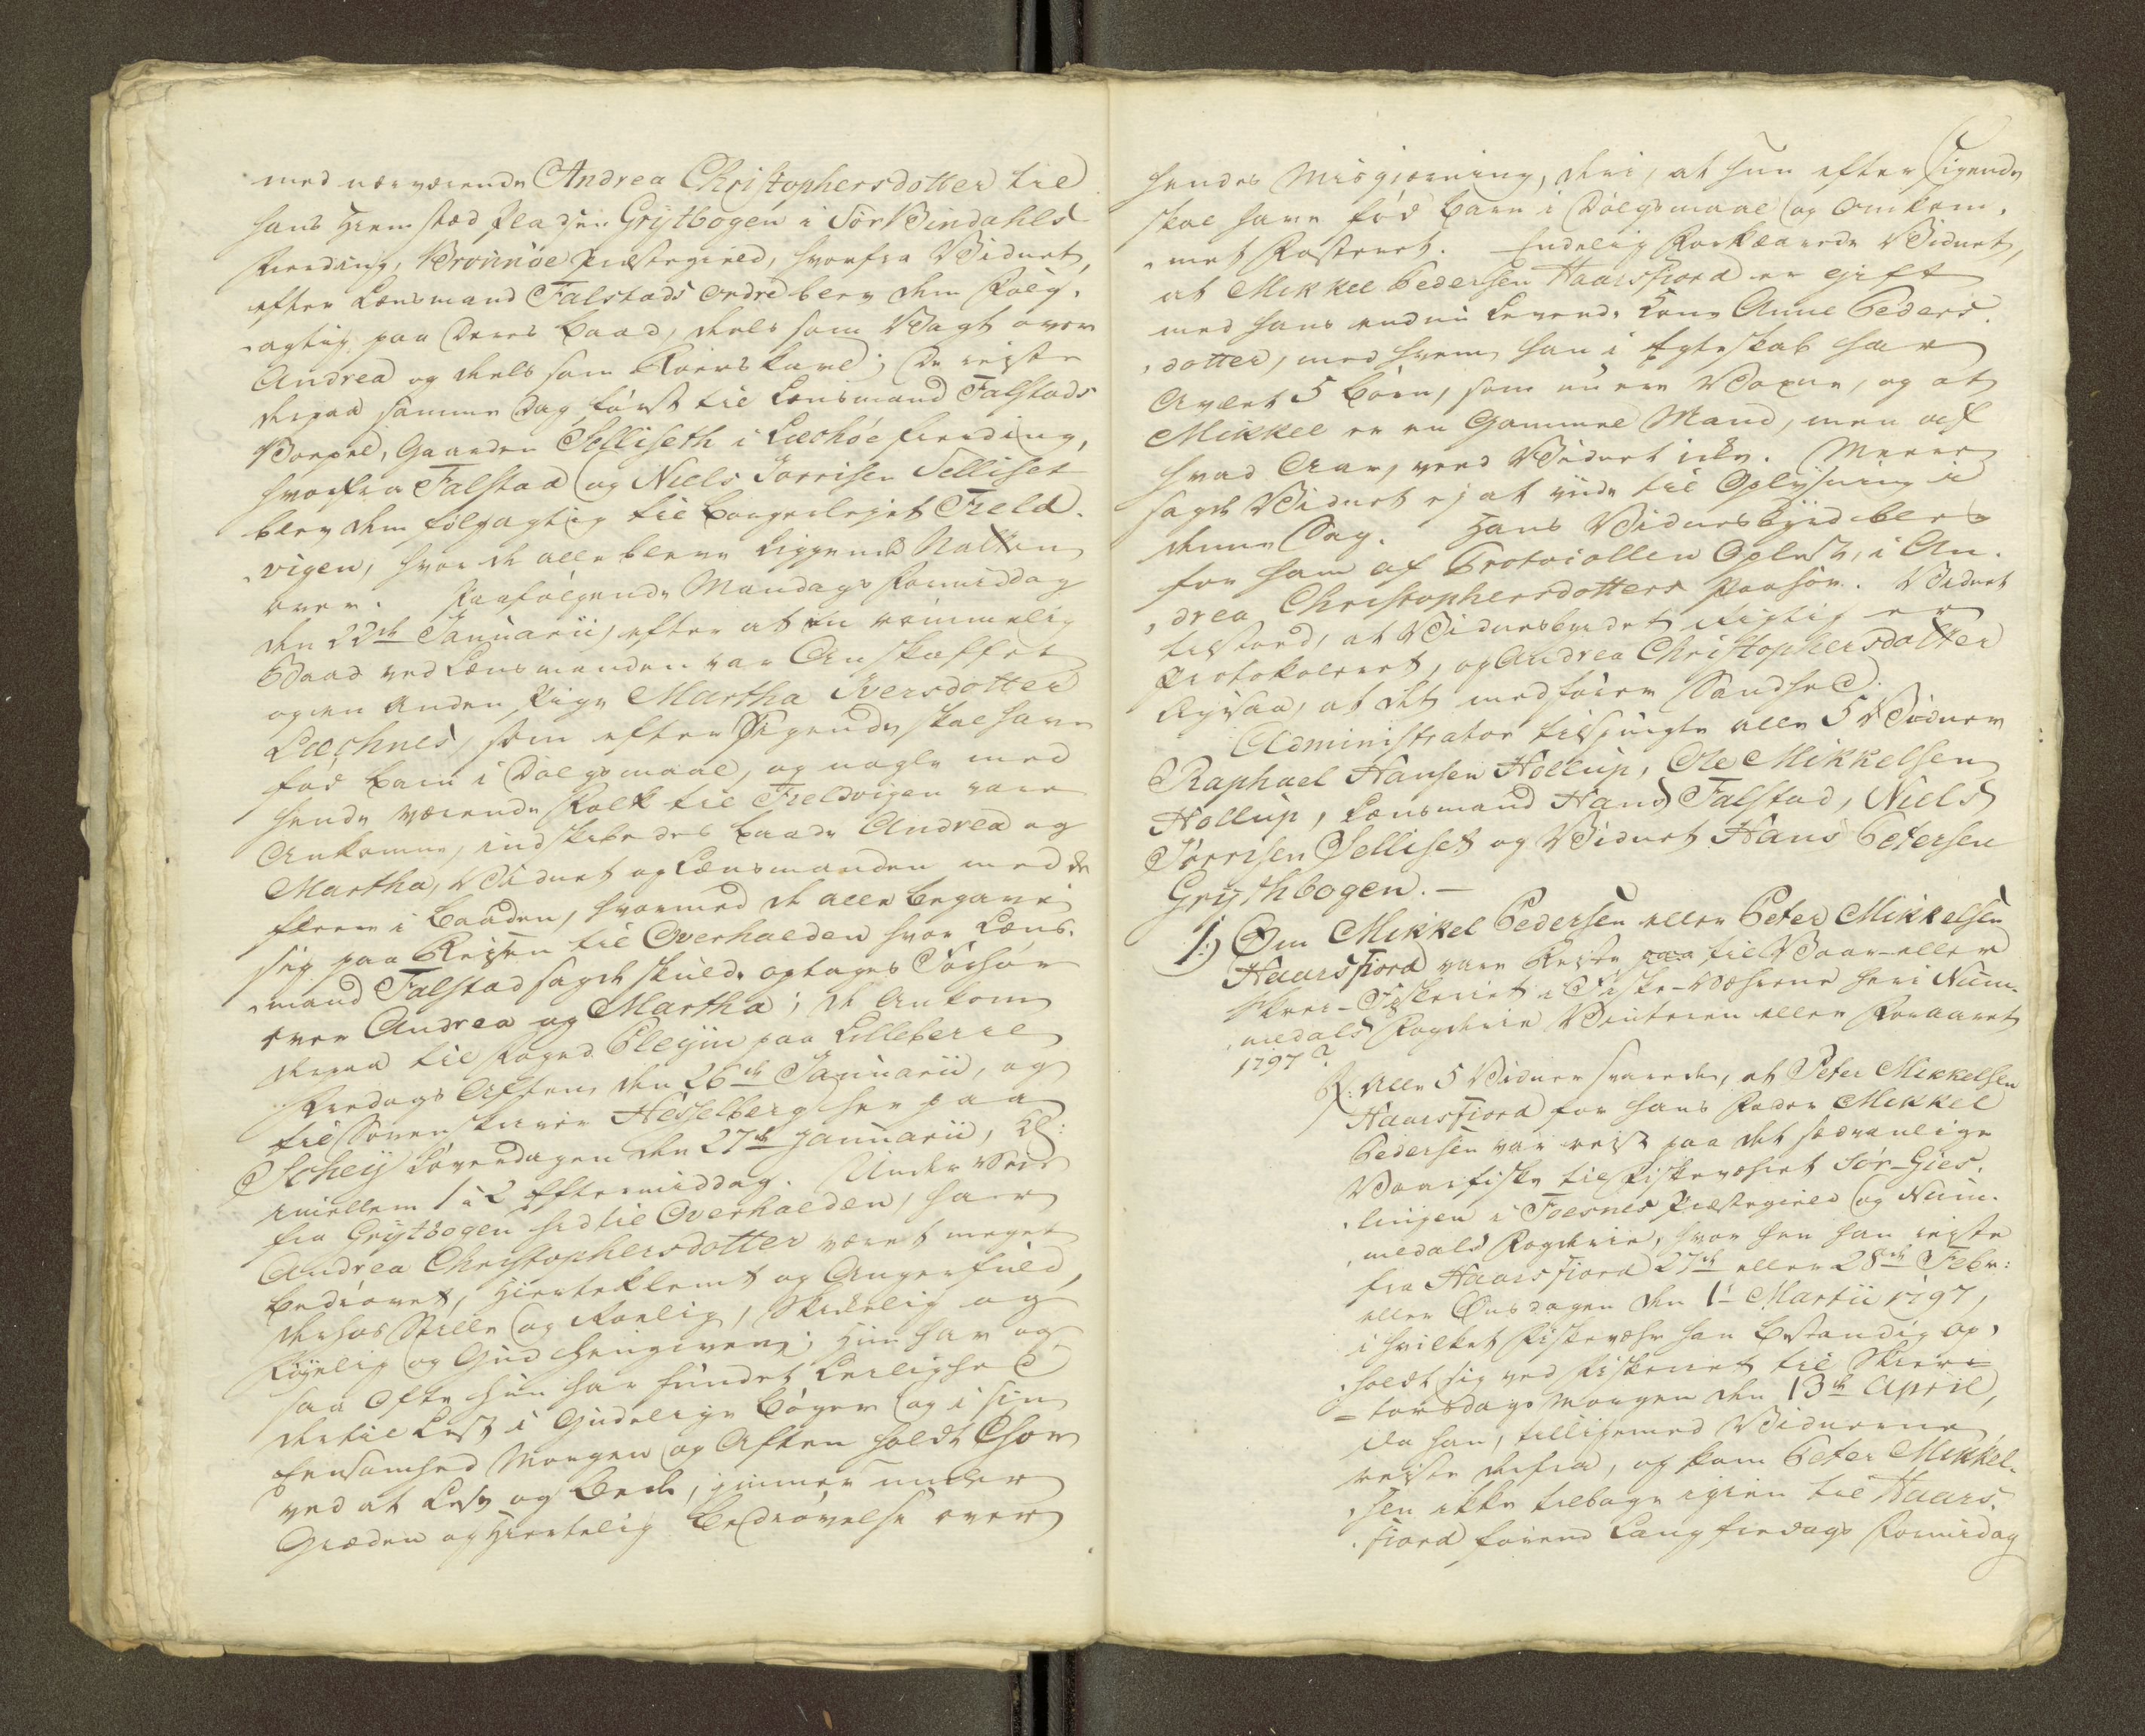 med nærværende Andrea Christophersdotter til
hans Hiemstæd Pladsen Grytbogen i Sør Bindahls
Fierding, Brønnøe Præstegield, hvorfra Vidnet,
efter Lensmand Falstads Ordre blev dem følg-
agtig paa deres Baad, deels som Vagt over
Andrea og deels som Roerskarl; de reiste
derpaa samme Dag først til Lensmand Falstads
Boepæl, Gaarden Selliseth i Lechøe Fierding,
hvorfra Falstad og Niels Jørrisen Selliset
blev dem følgagtig til Borgerlejet Field-
vigen, hvor de alle bleve liggende Natten
over. Paafølgende Mandags Formiddag
den 22de Januarii, efter at en rummelig
Baad ved Lensmanden var Anskaffet
og en Anden Pige Martha Iversdotter
Lechnes, som efter Sigende skal have
fød Barn i Dølgsmaal, og nogle med
hende værende Folk til Fieldvigen vare
Ankomne, indskibedes baade Andrea og
Martha, Vidnet og Lensmanden med de
fleere i Baaden, hvormed de alle begave
sig paa Reisen til Overhalden hvor Lens-
mand Falstad sagde skulde optages Forhør
over Andrea og Martha; de Ankom
derpaa til Foged Pleÿm paa Lilleberre
Fredags Aften den 26de Januarii, og
til Sorenskriver Hesselberg her paa
Scheij Løverdagen den 27de Januarii, Kl:
imellem 1 a 2 Eftermiddag. Under Veis
fra Grytbogen hid til Overhalden, har
Andrea Christophersdotter været meget
bedrøvet, Hierteklemt og Angerfuld,
derhos Stille og Roelig, Skikkelig og
Føyelig og Gud hengiven; hun har og
saa Ofte hun har fundet Leilighed
dertil Læst i Gudelige Bøger og i sin
Eensomhed Morgen og Aften holdt Chor
ved at Læse og Bede, immer under
Græden og Hiertelig Bedrøvelse over
hendes Misgierning, deri, at hun efter Sigende
skal have fød Barn i Dølgsmaal og Omkom-
met Fosteret. Endelig Forklarede Vidnet,
at Mikkel Pedersen Haarsfiord er gift
med hans endnu Levende Kone Anne Peders-
dotter, med hvem han i Egteskab har
Avlet 5 Børn, som nu ere Voxne, og at
Mikkel er en Gammel Mand, men af
hvad Aar, veed Vidnet icke. Meere
sagde Vidnet ej at viide til Oplysning i
denne Sag. Hans Vidnesbyrd blev
for ham af Protocollen Oplæst, i An-
drea Christophersdotters Paahør. Vidnet
tilstoed, at Vidnesbyrdet rigtig er
Protokoleret, og Andrea Christophersdotter
ligesaa, at det medfører Sandhed.
Administrator tilspurgte alle 5 Vidner
Raphael Hansen Hollup, Ole Mikkelsen
Hollup, Lensmand Hans Falstad, Niels
Jørrisen Selliset og Vidnet Hans Petersen
Grythbogen.—
1.) Om Mikkel Pedersen eller Peter Mikkelsen
Haarsfiord vare Reiste til Vaar- eller
Skrei-Fiskeriet i Fiske-Wæhrene her i Num-
medals Fogderie Vinteren eller Foraaret
1797?
R: Alle 5 Vidner svarede, at Peter Mikkelsen
Haarsfiord for hans Fader Mikkel
Pedersen var reist paa det sædvanlige
Vaarfiske til Fiskeværet Sør-Gies-
lingen i Foesnes Præstegield og Num-
medals Fogderie, hvor hen han reiste
fra Haarsfiord 27de eller 28de Febr:
eller Onsdagen den 1te Martii 1797,
i hvilket Fiskevæhr han bestandig op-
holdt sig ved Fiskeriet til Skier-
=torsdags Morgen den 13de April,
da han, tilligemed Vidnerne
reiste derfra, og kom Peter Mikkel-
sen ikke tilbage igien til Haars-
fiord førend Langfredags Formidag